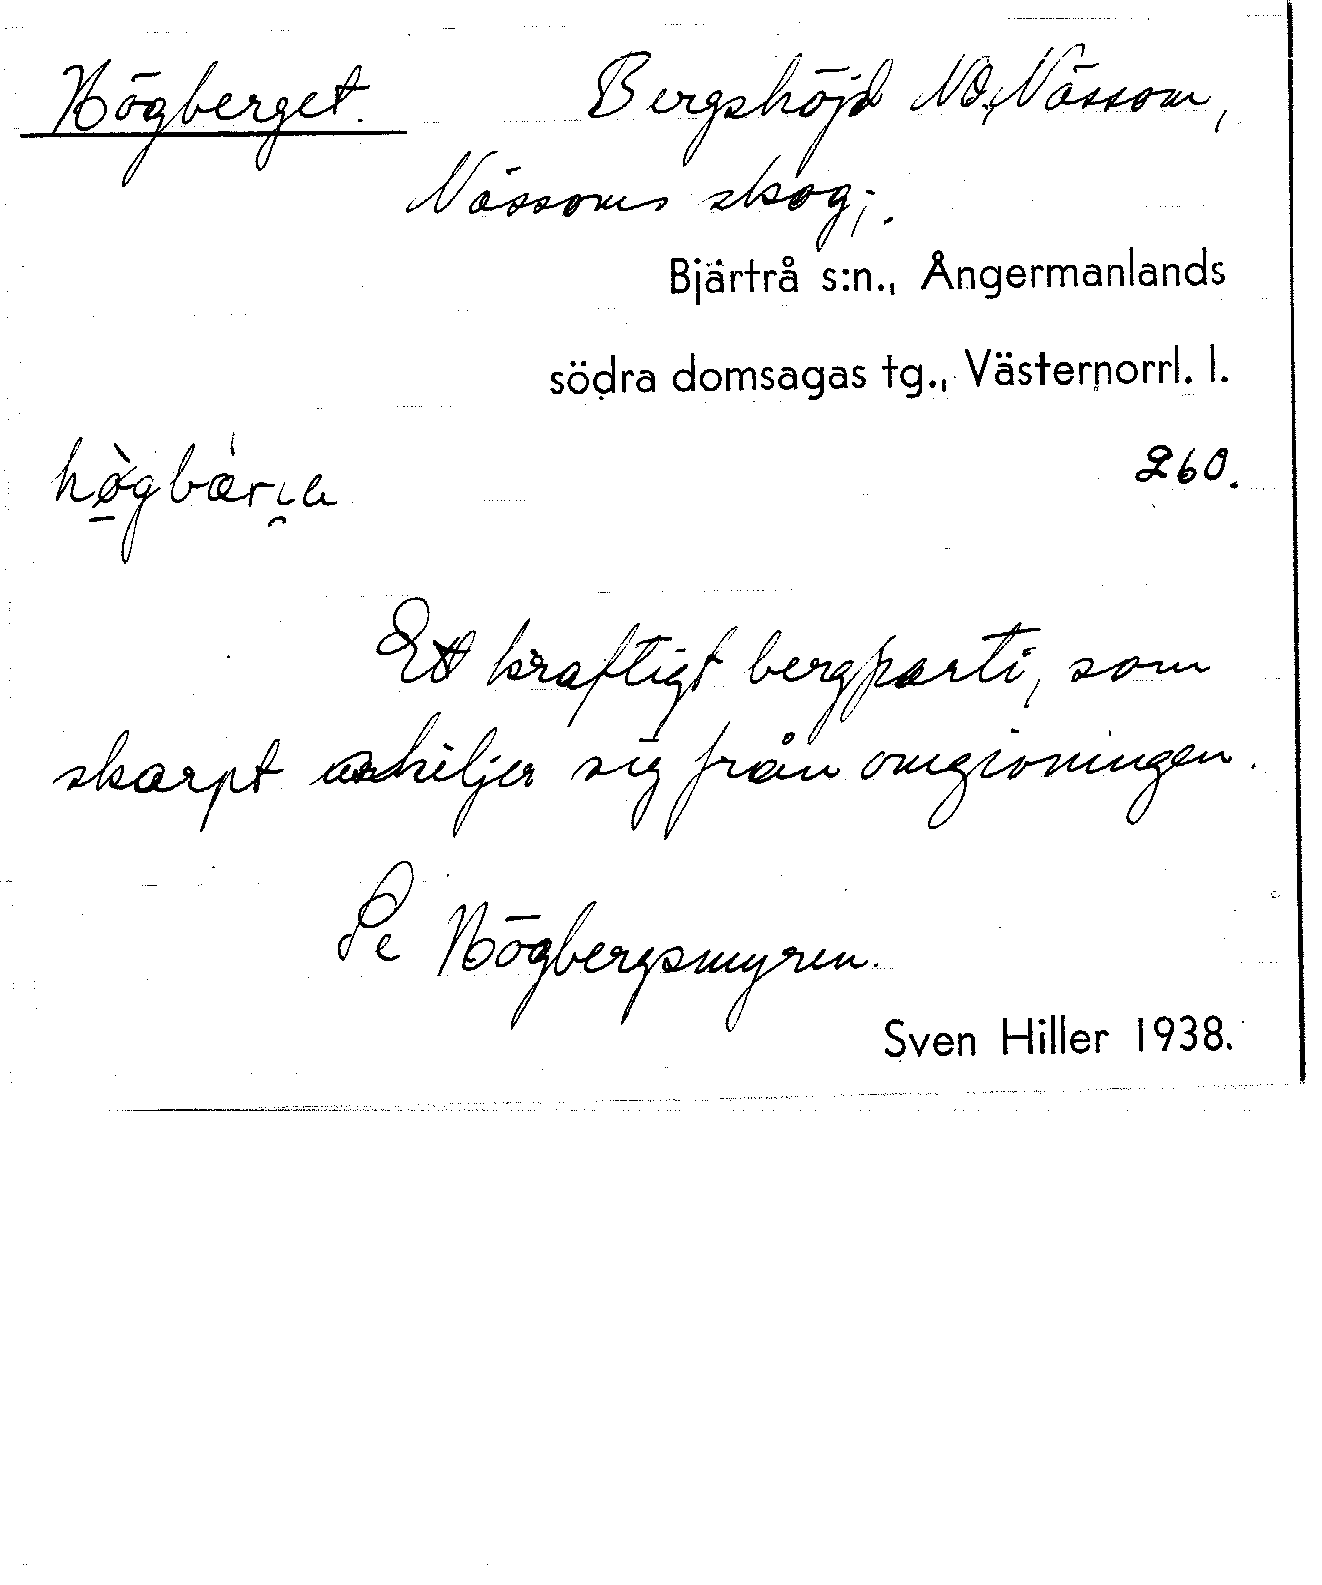 Högberget. Bergshöjd NO, Nässom,
Nässoms skog;.
Bjärtrå s:n., Ångermanlands
södra domsagas tg., Västernorrl. l.
260.
Ett kraftigt bergparti, som
skarpt avskiljer sig från omgivningen.
Se Högbergsmyren.
Sven Hiller 1938.